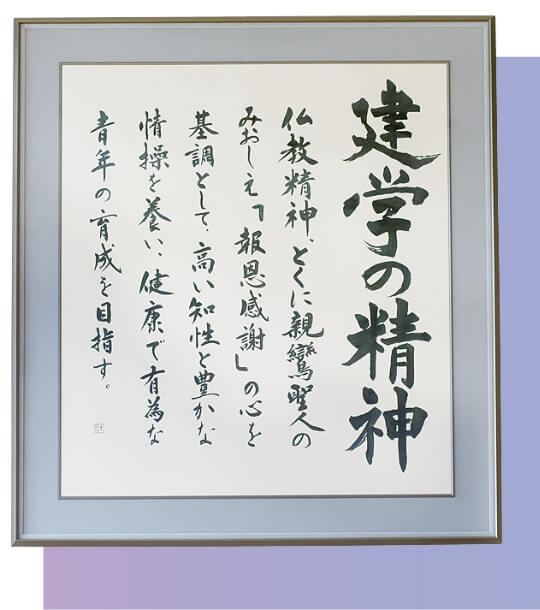 建学の精神
仏教精神、とくに親鸞聖人の
みおしえ「報恩感謝」の心を
基調として、高い知性と豊かな
情操を養い、健康で有為な
青年の育成を目指す。